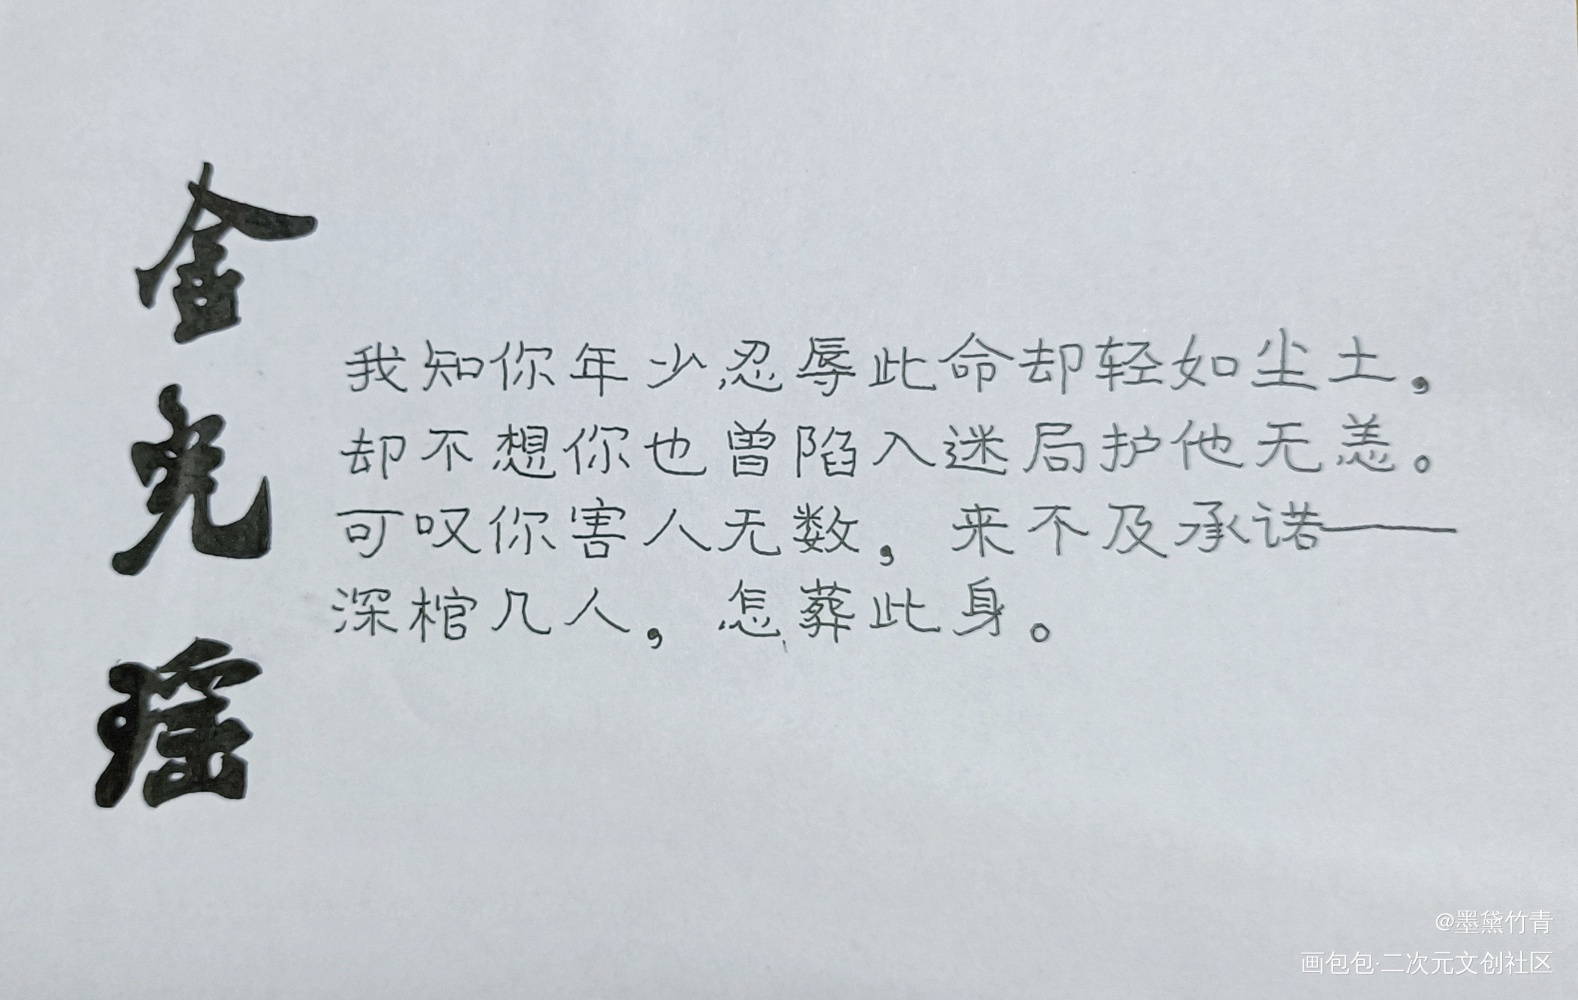 金光瑶
我知你年少忍辱此命却轻如尘土，
却不想你也曾陷入迷局护他无恙。
可叹你害人无数，来不及承诺——
深棺几人，怎葬此身。
@墨黛竹青
画包包·二次元文创社区